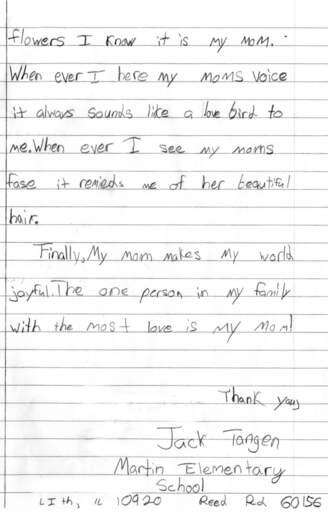 flowers I know it is my mom.
When ever I here my moms voice
it always sounds like a love bird to
me.When ever I see my moms
fase it remieds me of her beautiful
hair.
Finally,My mom makes my world
joyful.The one person in my family
with the most love is my Mom!
Thank you,
Jack Tangen
Martin Elementary
School
LIth, IL 10920 Reed Rd 60156